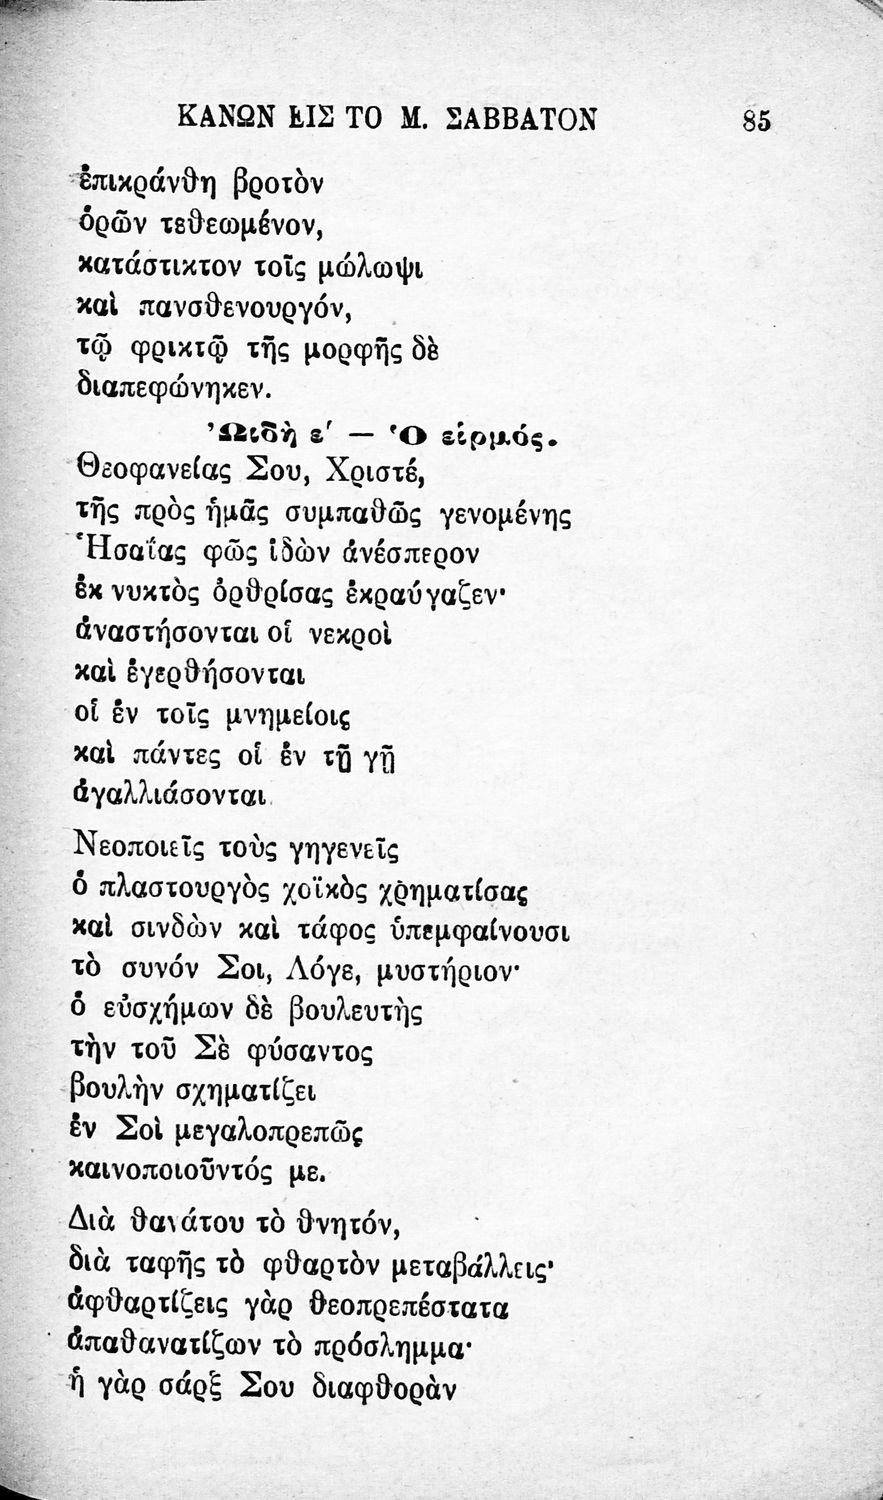 ΚΑΝΩΝ ΕΙΣ ΤΟ Μ. ΣΑΒΒΑΤΟΝ 85
ἐπικράνθη βροτὸν
ὁρῶν τεθεωμένον,
κατάστικτον τοῖς μώλωψι
καὶ πανσθενουργόν,
τῷ φρικτῷ τῆς μορφῆς δὲ
διαπεφώνηκεν.
ᾨδὴ ε΄ — Ὁ εἱρμός.
Θεοφανείας Σου, Χριστέ,
τῆς πρὸς ἡμᾶς συμπαθῶς γενομένης
Ἡσαΐας φῶς ἰδὼν ἀνέσπερον
ἐκ νυκτὸς ὀρθρίσας ἐκραύγαζεν·
ἀναστήσονται οἱ νεκροὶ
καὶ ἐγερθήσονται
οἱ ἐν τοῖς μνημείοις
καὶ πάντες οἱ ἐν τῇ γῇ
ἀγαλλιάσονται.
Νεοποιεῖς τοὺς γηγενεῖς
ὁ πλαστουργὸς χοϊκὸς χρηματίσας
καὶ σινδὼν καὶ τάφος ὑπεμφαίνουσι
τὸ συνόν Σοι, Λόγε, μυστήριον·
ὁ εὐσχήμων δὲ βουλευτὴς
τὴν τοῦ Σὲ φύσαντος
βουλὴν σχηματίζει
ἐν Σοὶ μεγαλοπρεπῶς
καινοποιοῦντός με.
Διὰ θανάτου τὸ θνητόν,
διὰ ταφῆς τὸ φθαρτὸν μεταβάλλεις·
ἀφθαρτίζεις γὰρ θεοπρεπέστατα
ἀπαθανατίζων τὸ πρόσλημμα·
ἡ γὰρ σάρξ Σου διαφθορὰν